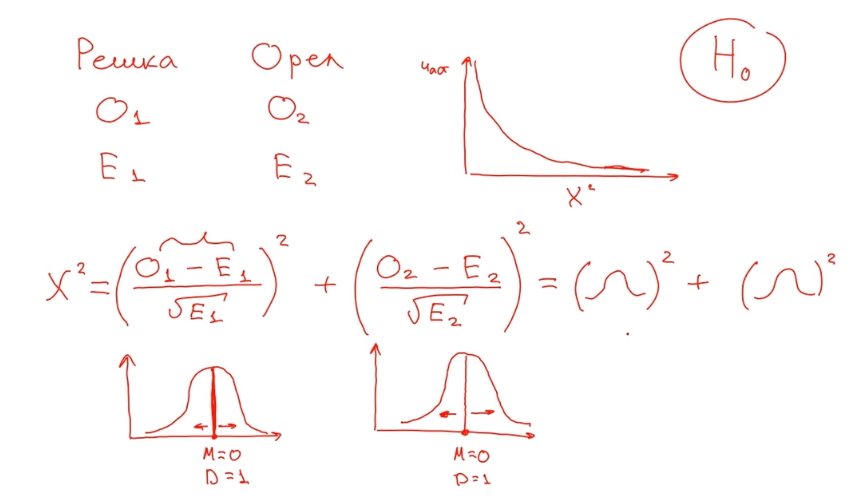 Решка Орел
H₀
O₁ O₂
E₁ E₂
час
X²
X² = ((O₁ − E₁)/√E₁)² + ((O₂ − E₂)/√E₂)² = ( )² + ( )²
M=0 M=0
D=1 D=1